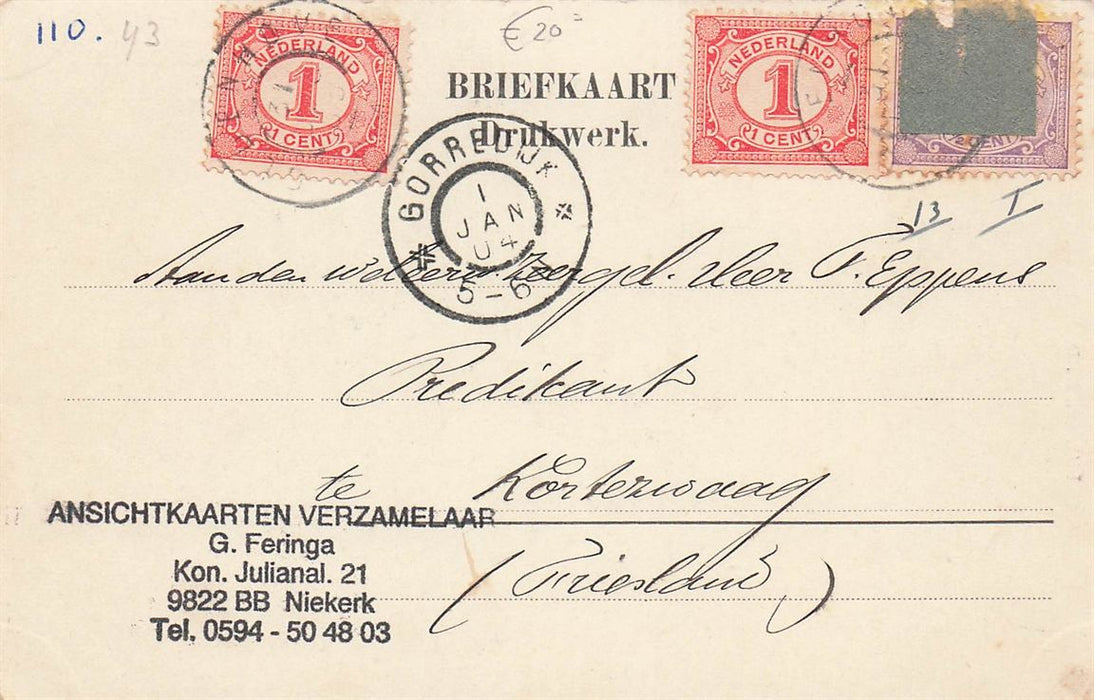 110. 43
€ 20=
NEDERLAND
1
1 CENT
NEDERLAND
1
1 CENT
½ CENT
BRIEFKAART
Drukwerk.
GORREDIJK
1
JAN
04
5-6
13 I
Aan den Zergel. Heer F. Eppens
Predikant
te Kortezwaag
(Friesland)
ANSICHTKAARTEN VERZAMELAAR
G. Feringa
Kon. Julianal. 21
9822 BB Niekerk
Tel. 0594 - 50 48 03